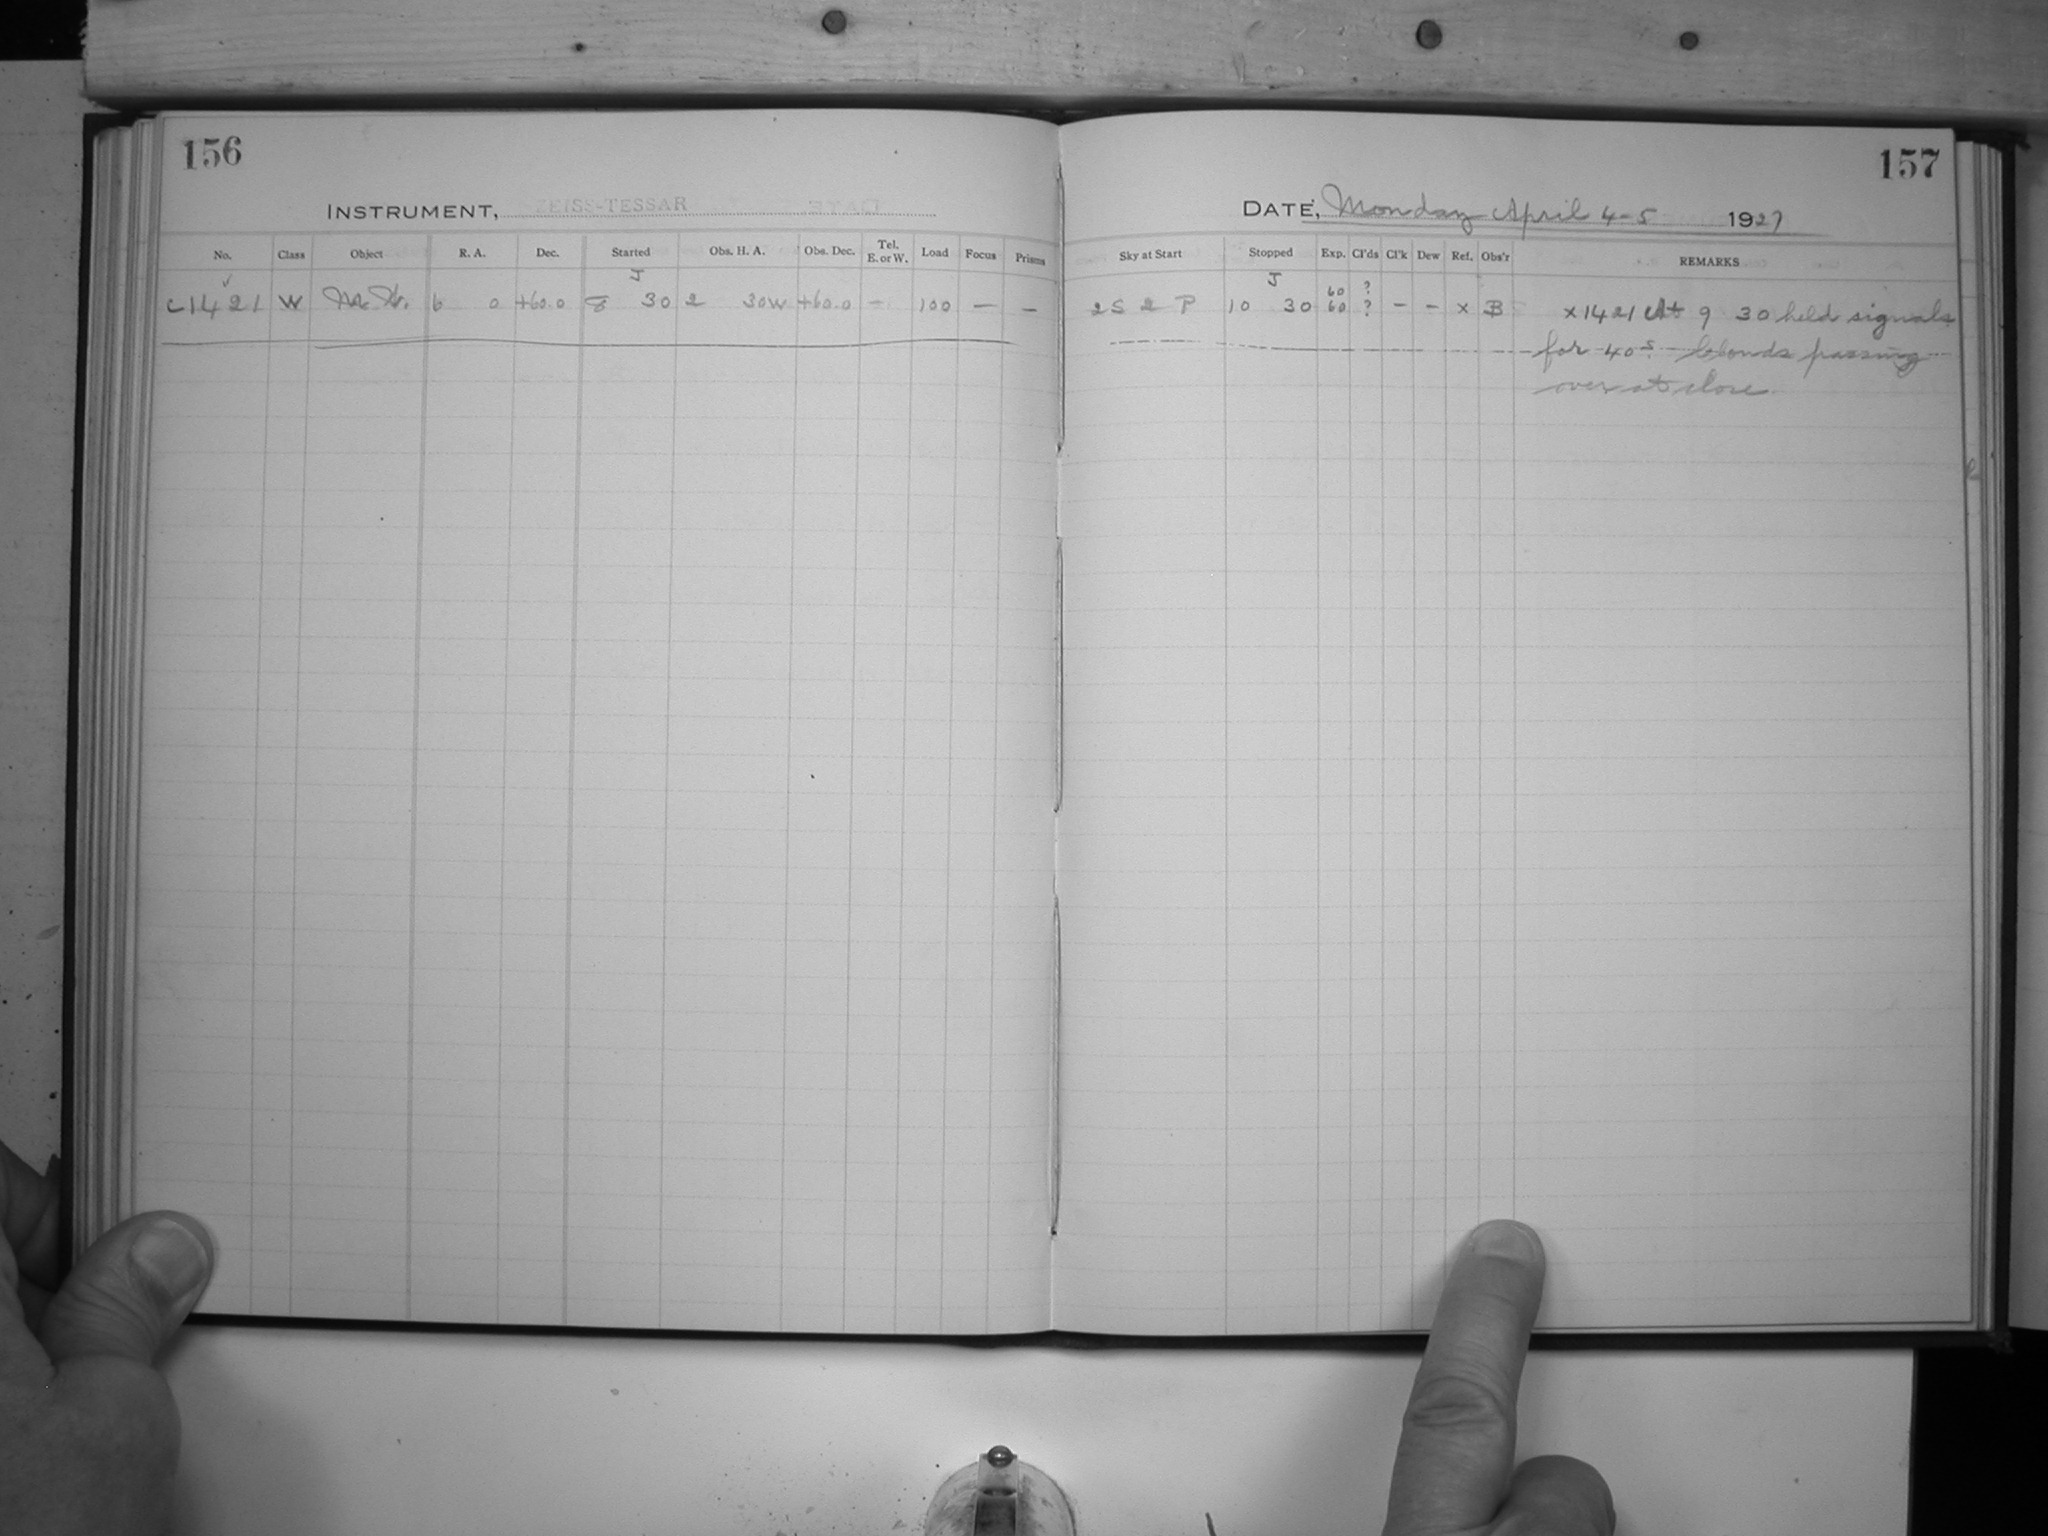 156
157
INSTRUMENT, ZEISS-TESSAR
DATE, Monday April 4-5 1927
No. Class Object R. A. Dec. Started Obs. H. A. Obs. Dec. Tel. E. or W. Load Focus Prisms Sky at Start Stopped Exp. Cl'ds Cl'k Dew Ref. Obs'r REMARKS
J J 60 ?
c1421 W 6 0 +60.0 8 30 2 30W +60.0 - 100 - - 2S 2 P 10 30 60 ? - - x B x1421 At 9 30 held signals
for 40s. Clouds passing
over at close.